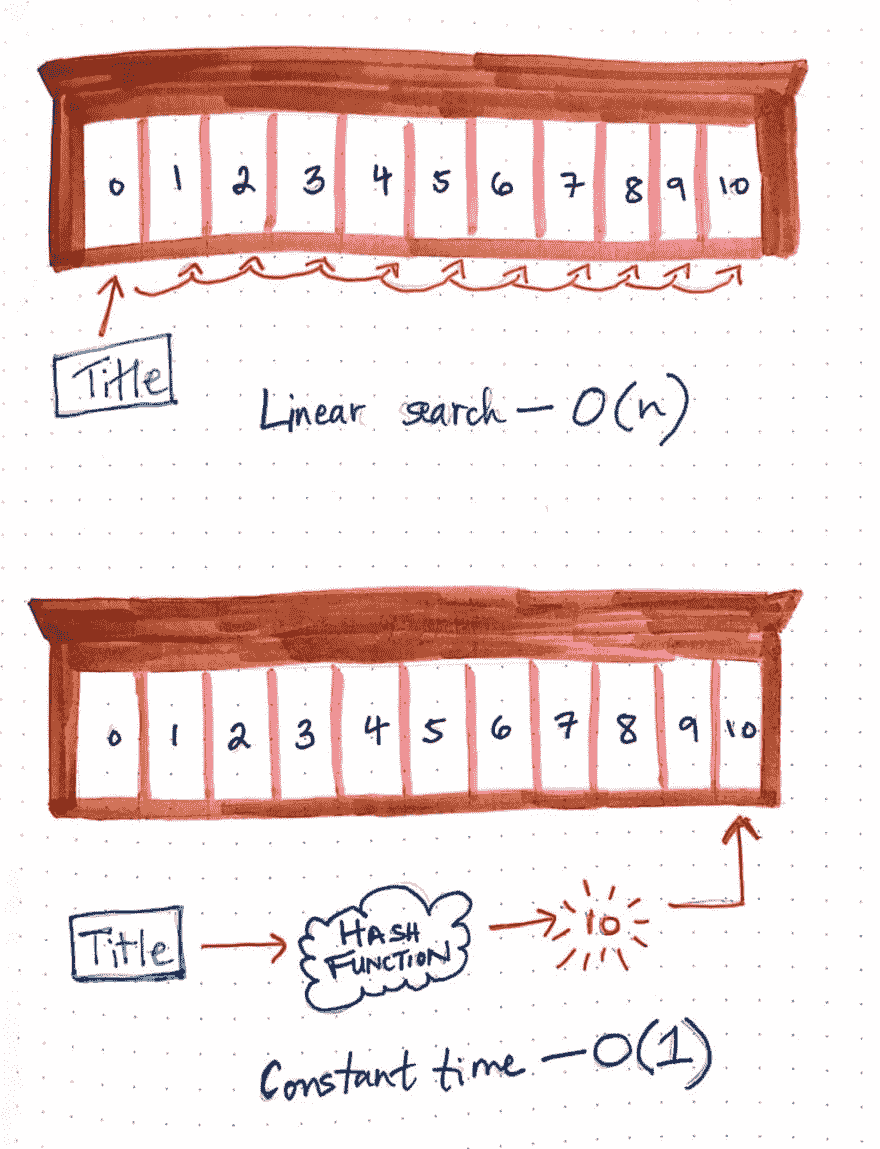 0 1 2 3 4 5 6 7 8 9 10
Title
Linear search — O(n)
0 1 2 3 4 5 6 7 8 9 10
Title
HASH
FUNCTION
10
Constant time — O(1)